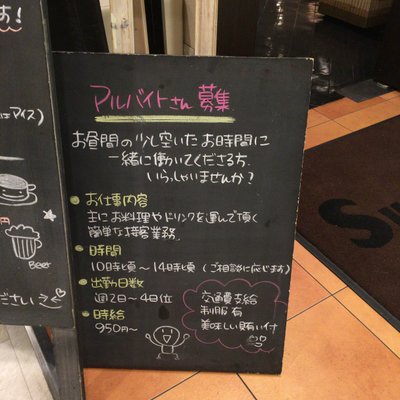 す!
はアイス)
Beer
ださいネ
アルバイトさん募集
お昼間の少し空いたお時間に
一緒に働いてくださる方、
いらっしゃいませんか?
お仕事内容
主にお料理やドリンクを運んで頂く
簡単な接客業務。
時間
10時頃〜14時頃(ご相談に応じます)
出勤日数
週2日〜4日位
時給
950円〜
交通費支給
制服有
美味しい賄い付